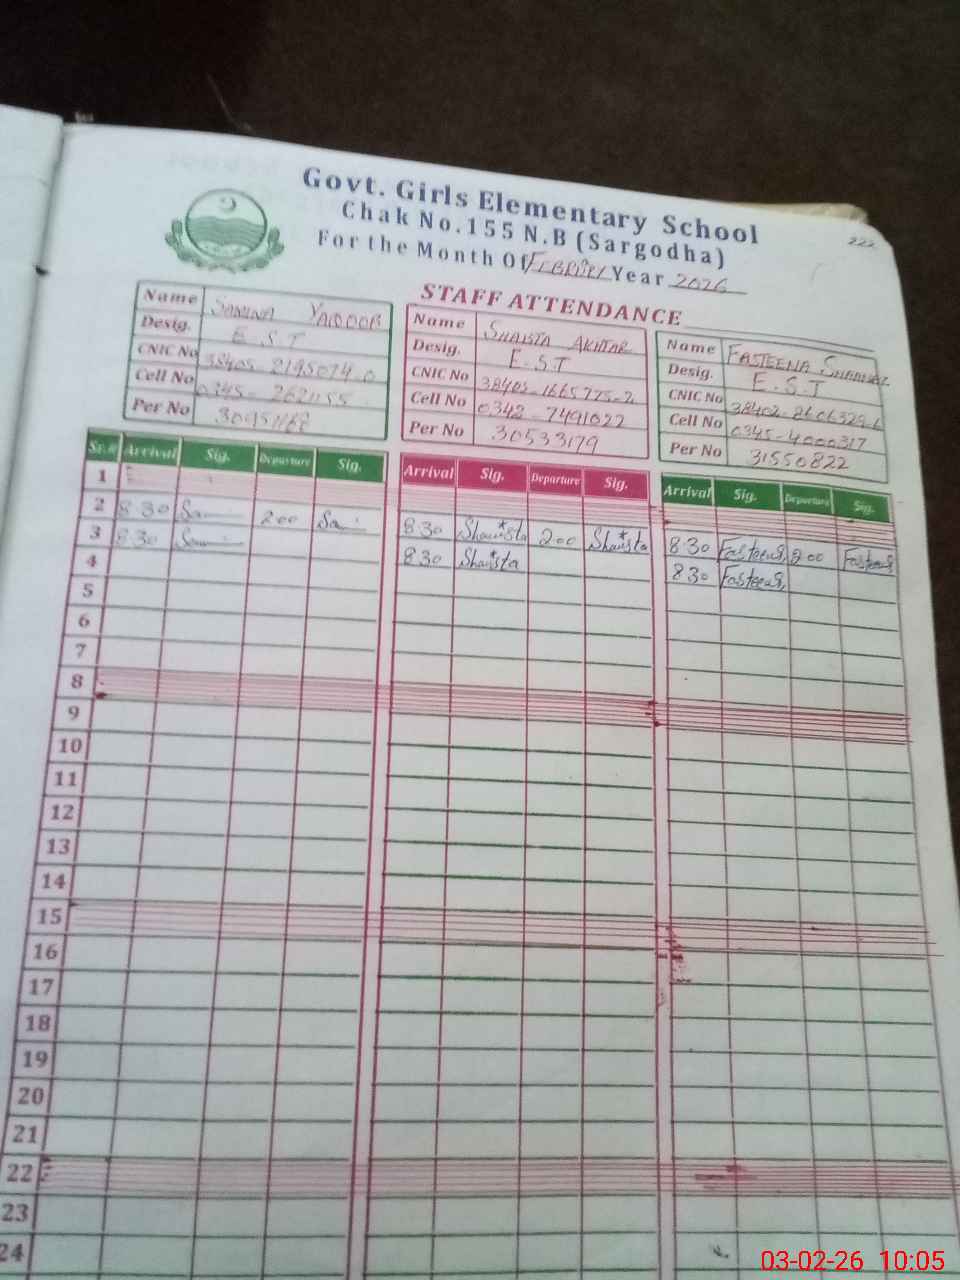 Govt. Girls Elementary School
Chak No.155 N.B (Sargodha)
For the Month Of Year 2026
222
STAFF ATTENDANCE
Name Samina Yaqoob
Desig. E.S.T
CNIC No 38405-8195074-0
Cell No
Per No
Name Shaista Akhtar
Desig. E.S.T
CNIC No 38403-1665775-2
Cell No 0342-7491022
Per No 30533179
Name Fasteena
Desig. E.S.T
CNIC No
Cell No 0345-4000317
Per No 31550822
Sr.# Arrival Sig. Departure Sig. Arrival Sig. Departure Sig. Arrival Sig. Departure Sig.
1
2 8 30 Sa 200 Sa 830 Shaista 200 Shaista 830 Fasteena 200 Fasteena
3 830 830 Shaista 830 Fasteena
4
5
6
7
8
9
10
11
12
13
14
15
16
17
18
19
20
21
22
23
24
03-02-26 10:05